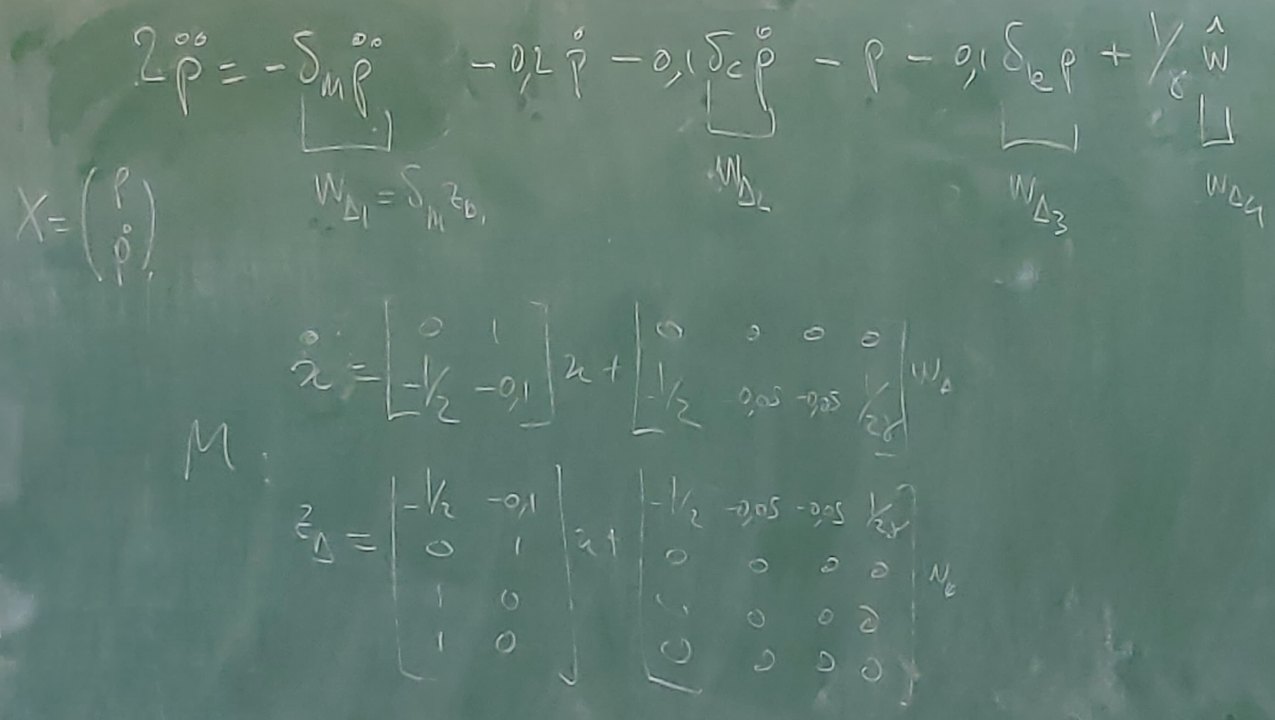 2p̈ = -δ_M p̈ - 0,2 ṗ - 0,1 δ_c ṗ - p - 0,1 δ_k p + 1/γ ŵ
w_Δ1 = δ_M z_Δ1 w_Δ2 w_Δ3 w_Δ4
X = (p ṗ)
ẋ = [0 1
-1/2 -0,1] x + [0 0 0 0
-1/2 0,05 -0,05 1/2γ] w_Δ
M :
z_Δ = [-1/2 -0,1
0 1
1 0
1 0] x + [-1/2 -0,05 -0,05 1/2γ
0 0 0 0
0 0 0
0 0 0 0]